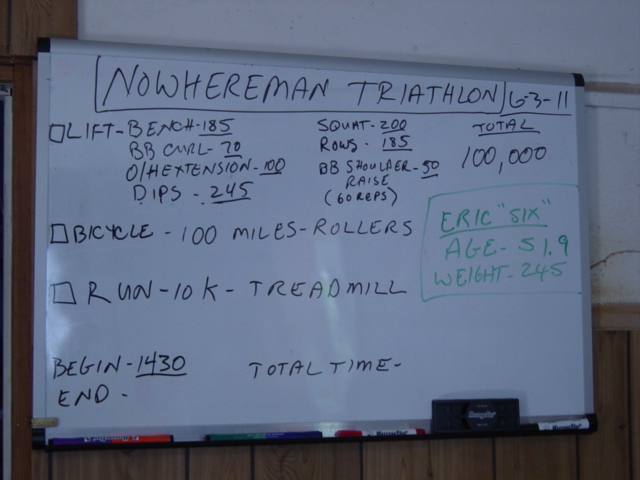 NOWHEREMAN TRIATHLON 6-3-11
LIFT-BENCH-185
BB CURL-70
O/HEXTENSION-100
DIPS-245
SQUAT-200
ROWS-185
BB SHOULDER-50
RAISE
(60 REPS)
TOTAL
100,000
ERIC "SIX"
AGE-51.9
WEIGHT-245
BICYCLE-100 MILES-ROLLERS
RUN-10K-TREADMILL
BEGIN-1430
END-
TOTAL TIME-